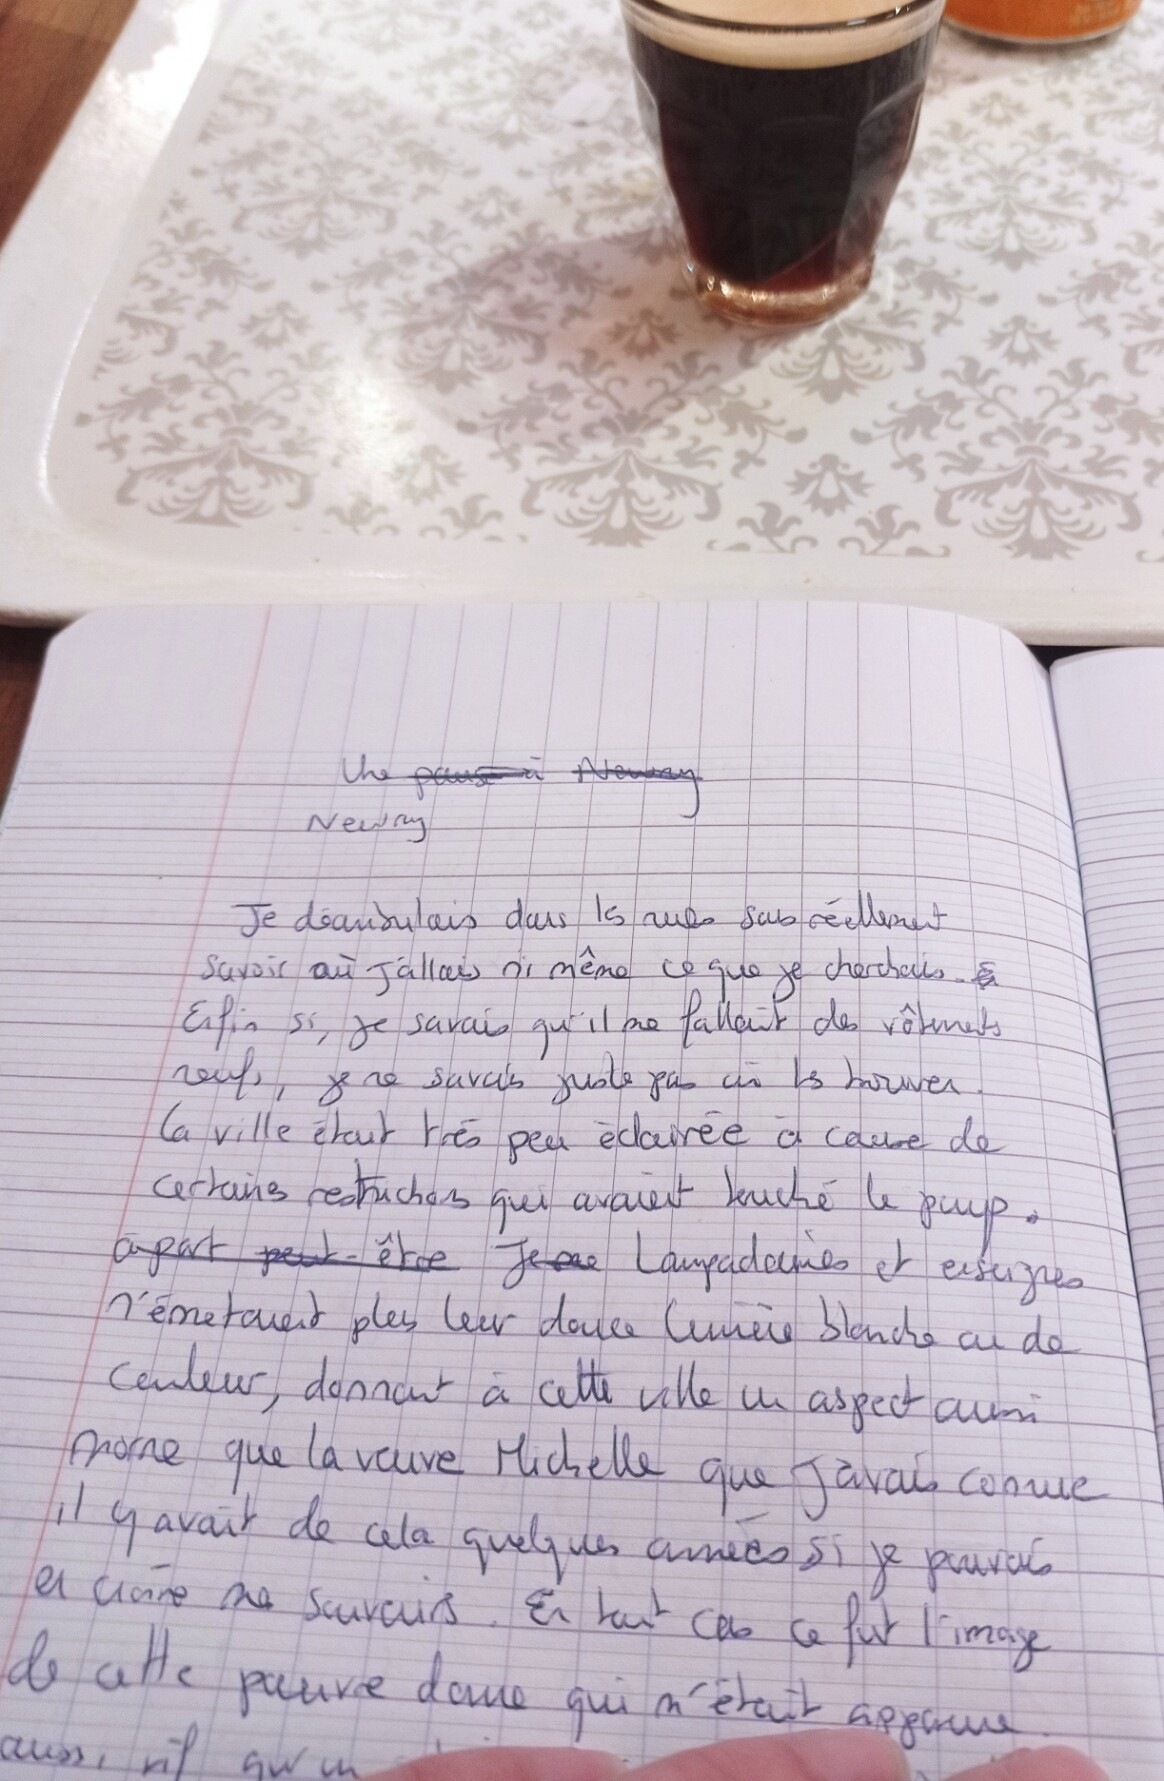 Une pause à Newray
Newray
Je déambulais dans les rues sans réellement
savoir où j'allais ni même ce que je cherchais.
Enfin si, je savais qu'il me fallait des vêtements
neufs, je ne savais juste pas où les trouver.
La ville était très peu éclairée à cause de
certaines restrictions qui avaient touché le pays.
à part peut-être Lampadaires et enseignes
n'émetaient plus leur douce lumière blanche ou de
couleur, donnant à cette ville un aspect aussi
morne que la veuve Michelle que j'avais connue
il y avait de cela quelques années si je pouvais
en croire mes souvenirs. En tout cas ce fut l'image
de cette pauvre dame qui m'était apparue
aussi vif qu'un